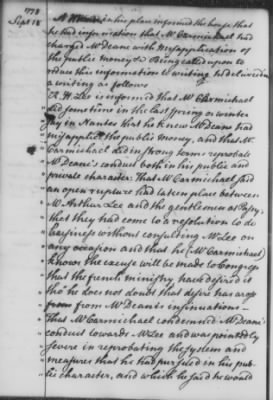 1778
Sept 18
in his place informed the house that
he had information that Mr Carmichael had
charged Mr Deane with misapplication of
the public money & Being called upon to
reduce this information to writing he delivered in
a writing as follows
R. H. Lee is informed that Mr Carmichael
did sometime in the last Spring or winter
say in Nantes that he knew Mr Deane had
misapplied the public money, and that Mr
Carmichael did in strong terms reprobate
Mr Deane's conduct both in his public and
private character. That Mr Carmichael said
an open rupture had taken place between
Mr Arthur Lee and the gentlemen at Passy,
that they had come to a resolution to do
business without consulting Mr Lee on
any occasion and that he (Mr Carmichael)
knows the excuse will be made to Congress
that the french ministry have desired it
tho' he does not doubt that desire has arose
from from Mr Deane's insinuations—
That Mr Carmichael condemned Mr Deane's
conduct towards Mr Lee and was pointedly
severe in reprobating the System and
measures that he had pursued in his pub-
lic character, and which he said he would